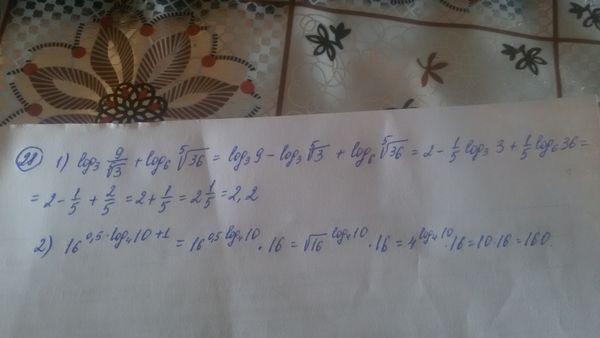 (28) 1) log₃ 9/√3 + log₆ ⁵√36 = log₃9 − log₃ ⁵√3 + log₆ ⁵√36 = 2 − 1/5 log₃ 3 + 1/5 log₆ 36 =
= 2 − 1/5 + 2/5 = 2 + 1/5 = 2 1/5 = 2,2
2) 16^(0,5·log₄10 + 1) = 16^(0,5 log₄10) · 16 = √16^(log₄10) · 16 = 4^(log₄10) · 16 = 10·16 = 160.